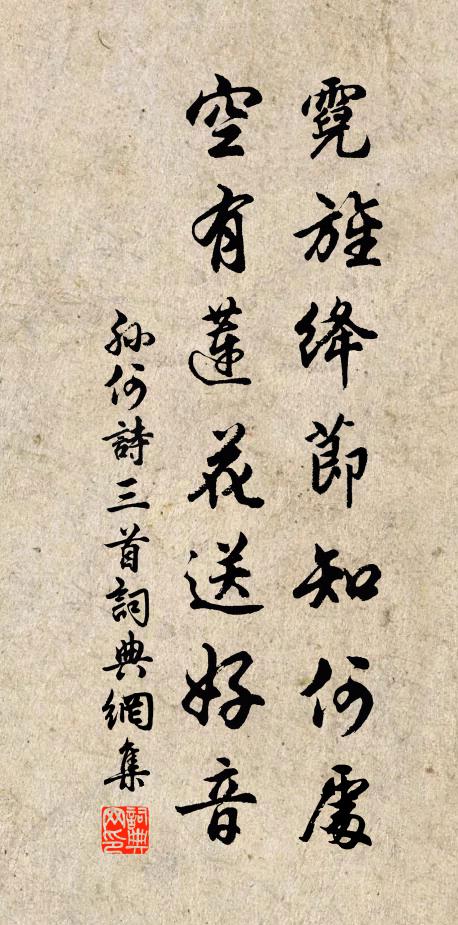 霓旌絳節知何處
空有蓮花送好音
孫何詩三首詞典網集
詞典网印